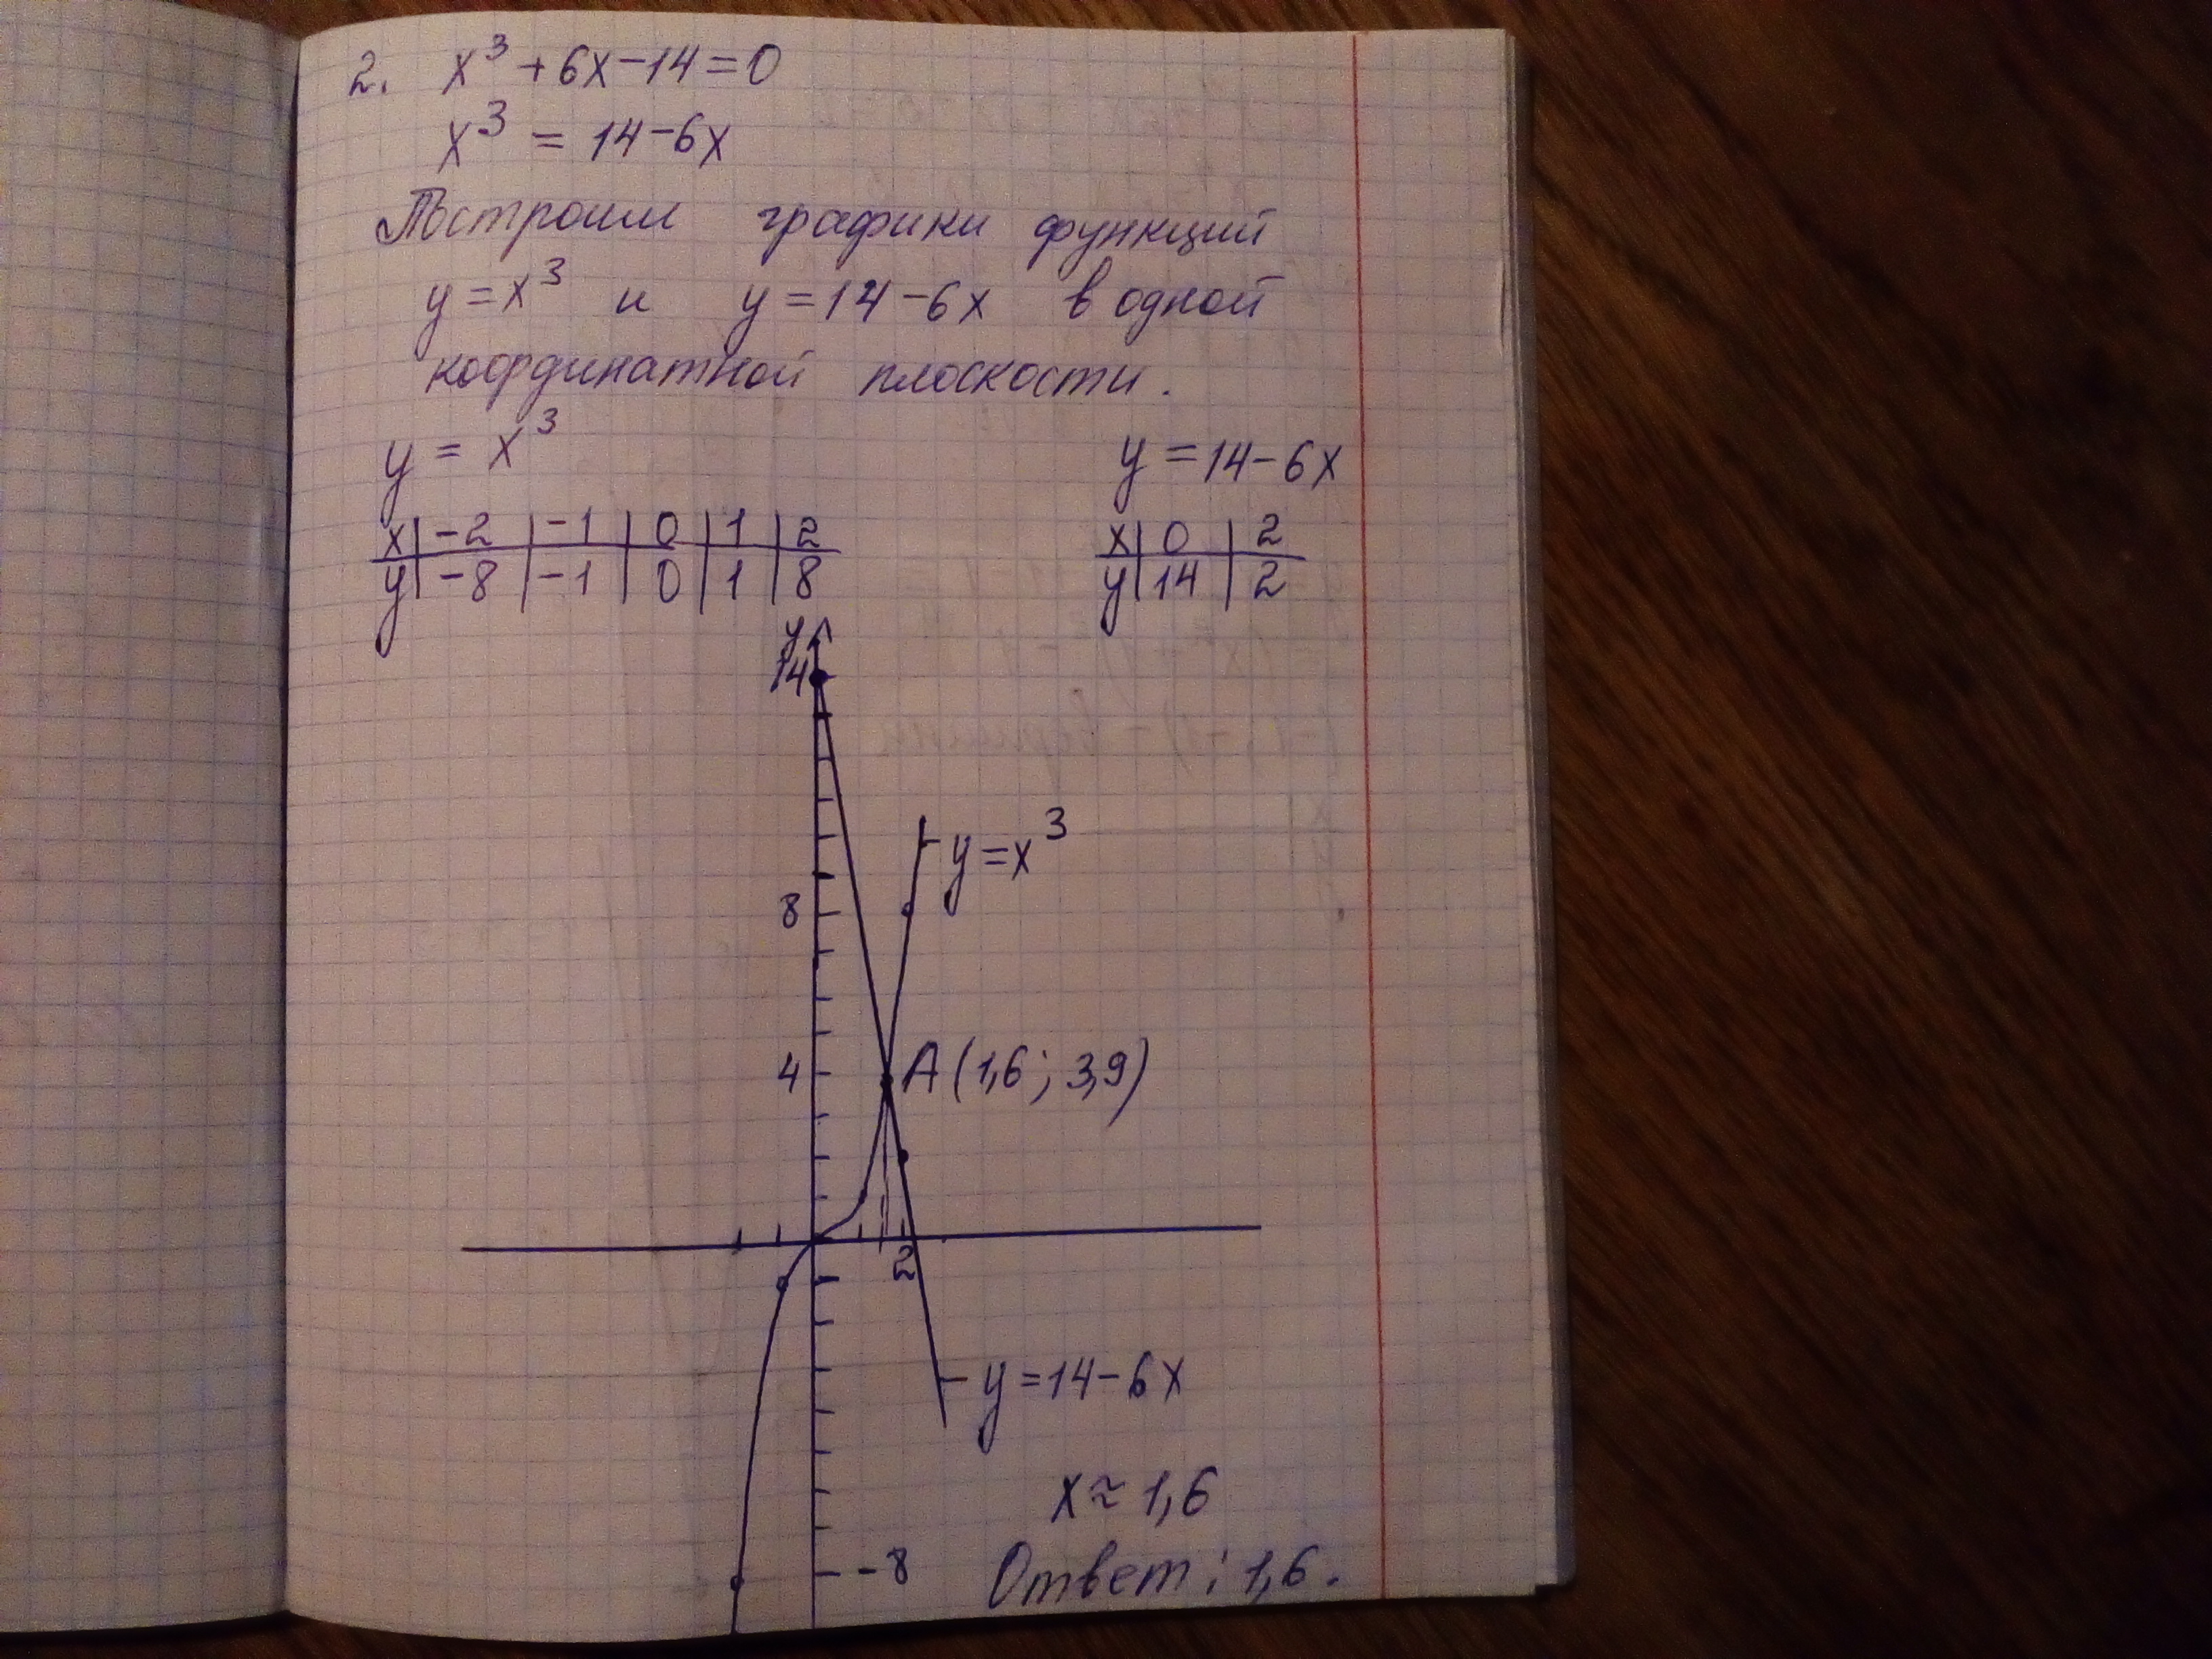 2. x³ + 6x - 14 = 0
x³ = 14 - 6x
Построим графики функций
y = x³ и y = 14 - 6x в одной
координатной плоскости.
y = x³ y = 14 - 6x
x | -2 | -1 | 0 | 1 | 2 x | 0 | 2
y | -8 | -1 | 0 | 1 | 8 y | 14 | 2
y
14
y = x³
8
4 A (1,6; 3,9)
2
y = 14 - 6x
x ≈ 1,6
-8 Ответ: 1,6.